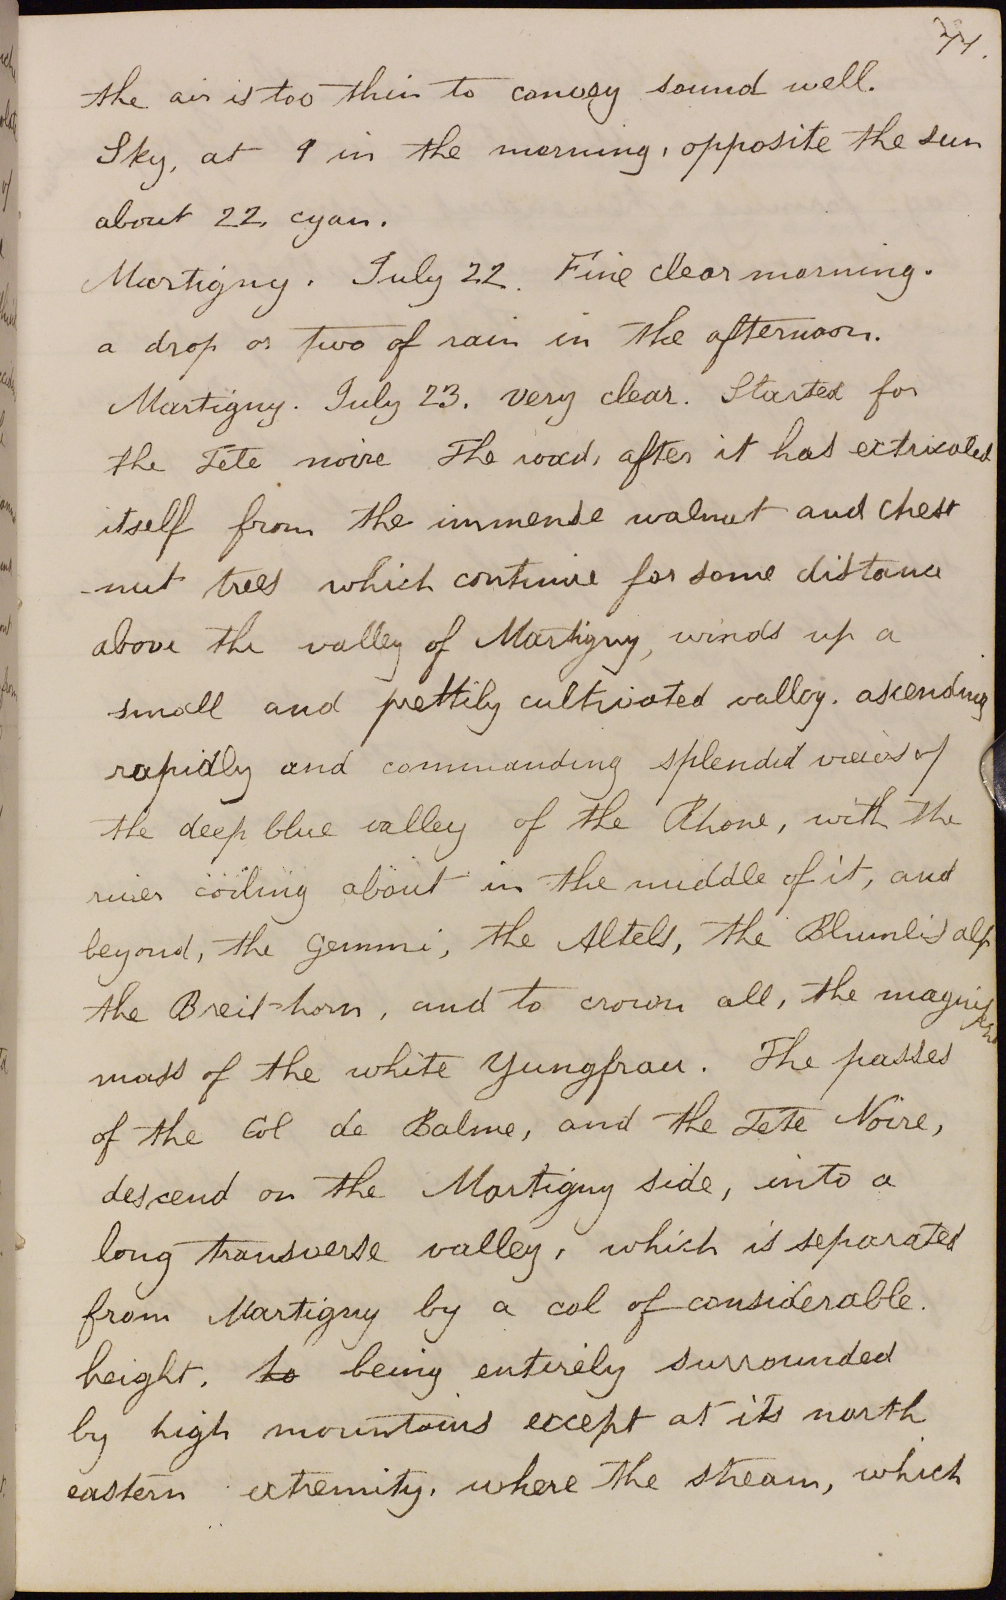 77.
the air is too thin to convey sound well.
Sky, at 9 in the morning, opposite the sun
about 22, cyan.
Martigny. July 22. Fine clear morning.
a drop or two of rain in the afternoon.
Martigny. July 23. very clear. Started for
the Tete noire The road, after it has extricated
itself from the immense walnut and chest
-nut trees which continue for some distance
above the valley of Martigny, winds up a
small and prettily cultivated valley. ascending
rapidly and commanding splendid views of
the deep blue valley of the Rhone, with the
river coiling about in the middle of it, and
beyond, the Gemmi, the Altels, the Blumlis alp
the Breit-horn, and to crown all, the magnificent
mass of the white Yungfrau. The passes
of the Col de Balme, and the Tete Noire,
descend on the Martigny side, into a
long transverse valley, which is separated
from Martigny by a col of considerable.
height. to being entirely surrounded
by high mountains except at its north
eastern extremity. where the stream, which